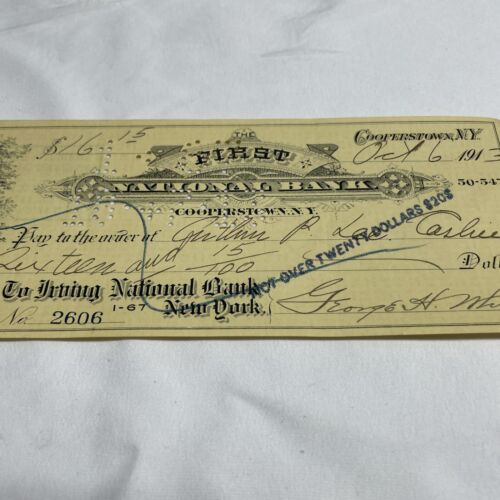 $16 15
THE
FIRST
NATIONAL BANK
COOPERSTOWN, N.Y.
COOPERSTOWN, N.Y.
Oct 6 1913
50-547
Pay to the order of
Sixteen and 15/100 Doll
NOT OVER TWENTY DOLLARS $20$
To Irving National Bank
New York.
1-67
No. 2606
George H. Whi